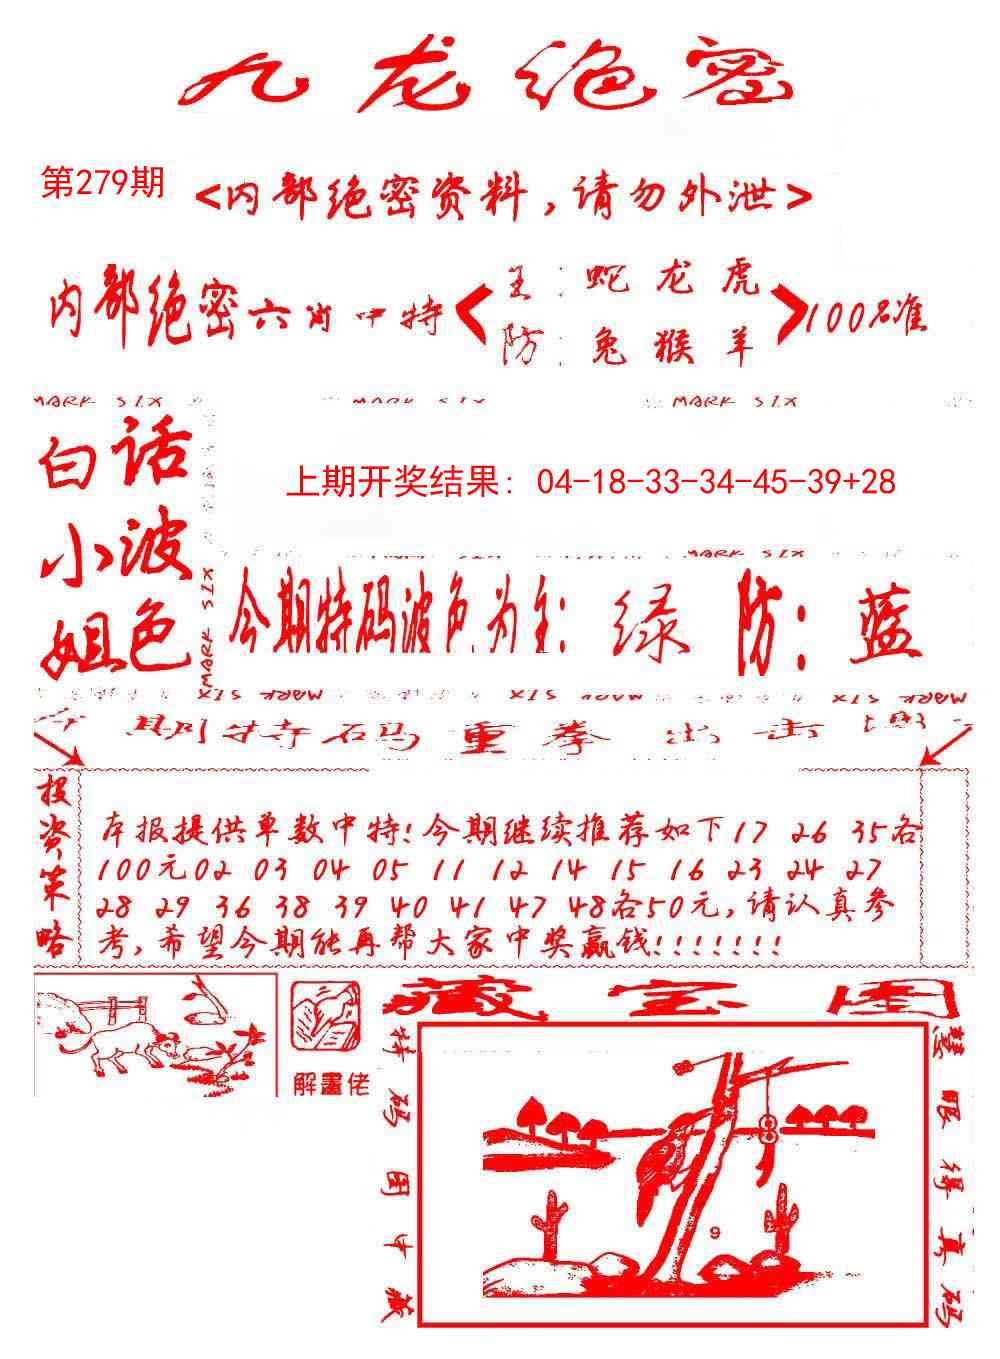 九龙绝密
第279期
<内部绝密资料,请勿外泄>
内部绝密六肖中特
主:蛇 龙 虎
防:兔 猴 羊
100%准
MARK SIX MARK SIX MARK SIX
白话
小波
姐色
上期开奖结果: 04-18-33-34-45-39+28
MARK SIX
MARK SIX
今期特码波色为主: 绿 防: 蓝
MARK SIX MARK SIX MARK SIX MARK SIX MARK SIX
期特码重拳出击
投资策略
本报提供单数中特!今期继续推荐如下17 26 35各
100元02 03 04 05 11 12 14 15 16 23 24 27
28 29 36 38 39 40 41 47 48各50元,请认真参
考,希望今期能再帮大家中奖赢钱!!!!!!!
解畫佬
藏宝图
特码图中藏
9
慧眼得真码